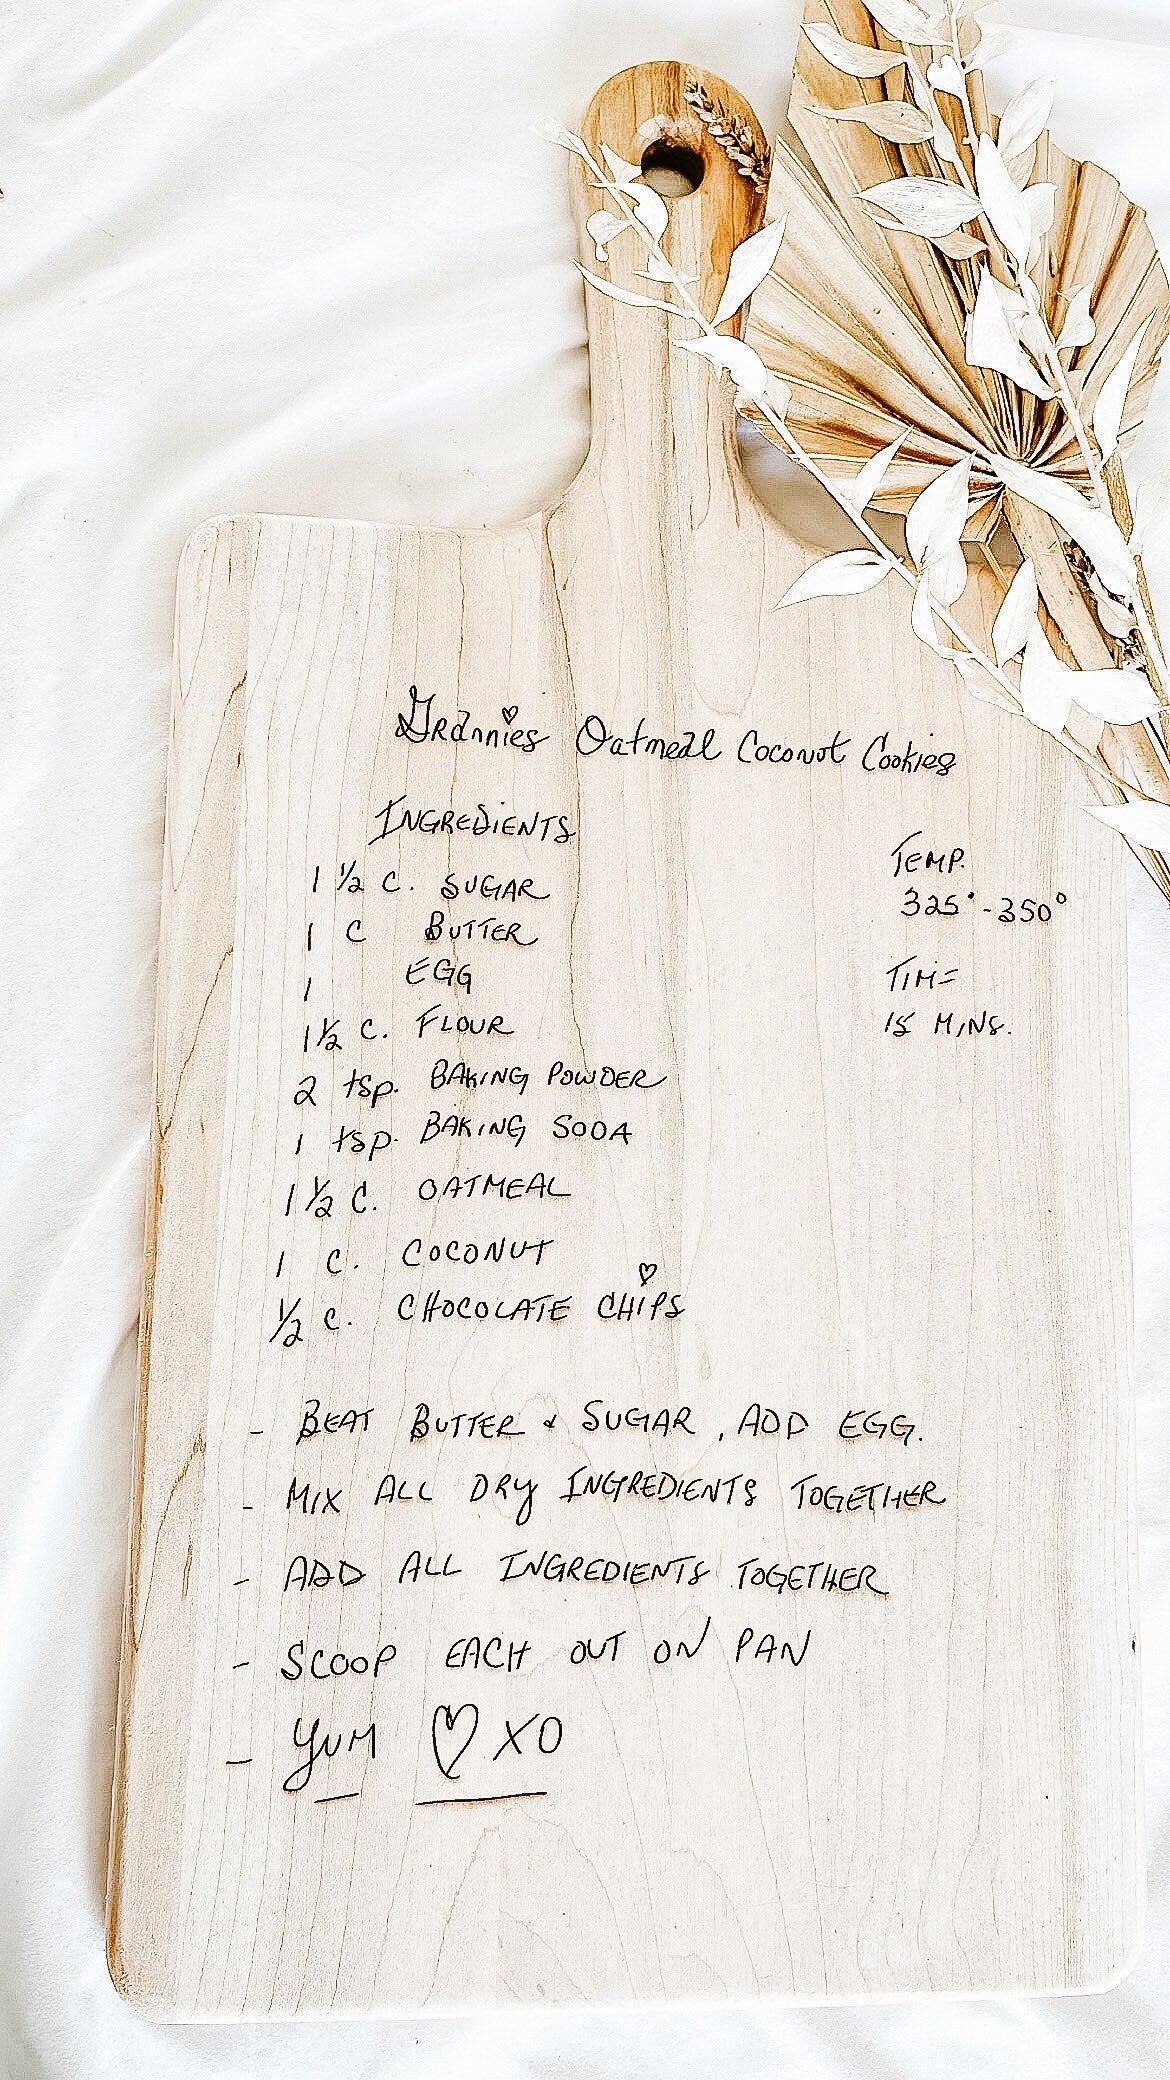 Grannies Oatmeal Coconut Cookies
INGREDIENTS
1 1/2 C. SUGAR
1 C BUTTER
1 EGG
1 1/2 C. FLOUR
2 tsp. BAKING POWDER
1 tsp. BAKING SODA
1 1/2 C. OATMEAL
1 C. COCONUT
1/2 C. CHOCOLATE CHIPS
TEMP.
325° - 350°
TIME
15 MINS.
- BEAT BUTTER & SUGAR, ADD EGG.
- MIX ALL DRY INGREDIENTS TOGETHER
- ADD ALL INGREDIENTS TOGETHER
- SCOOP EACH OUT ON PAN
- YUM ♡ XO